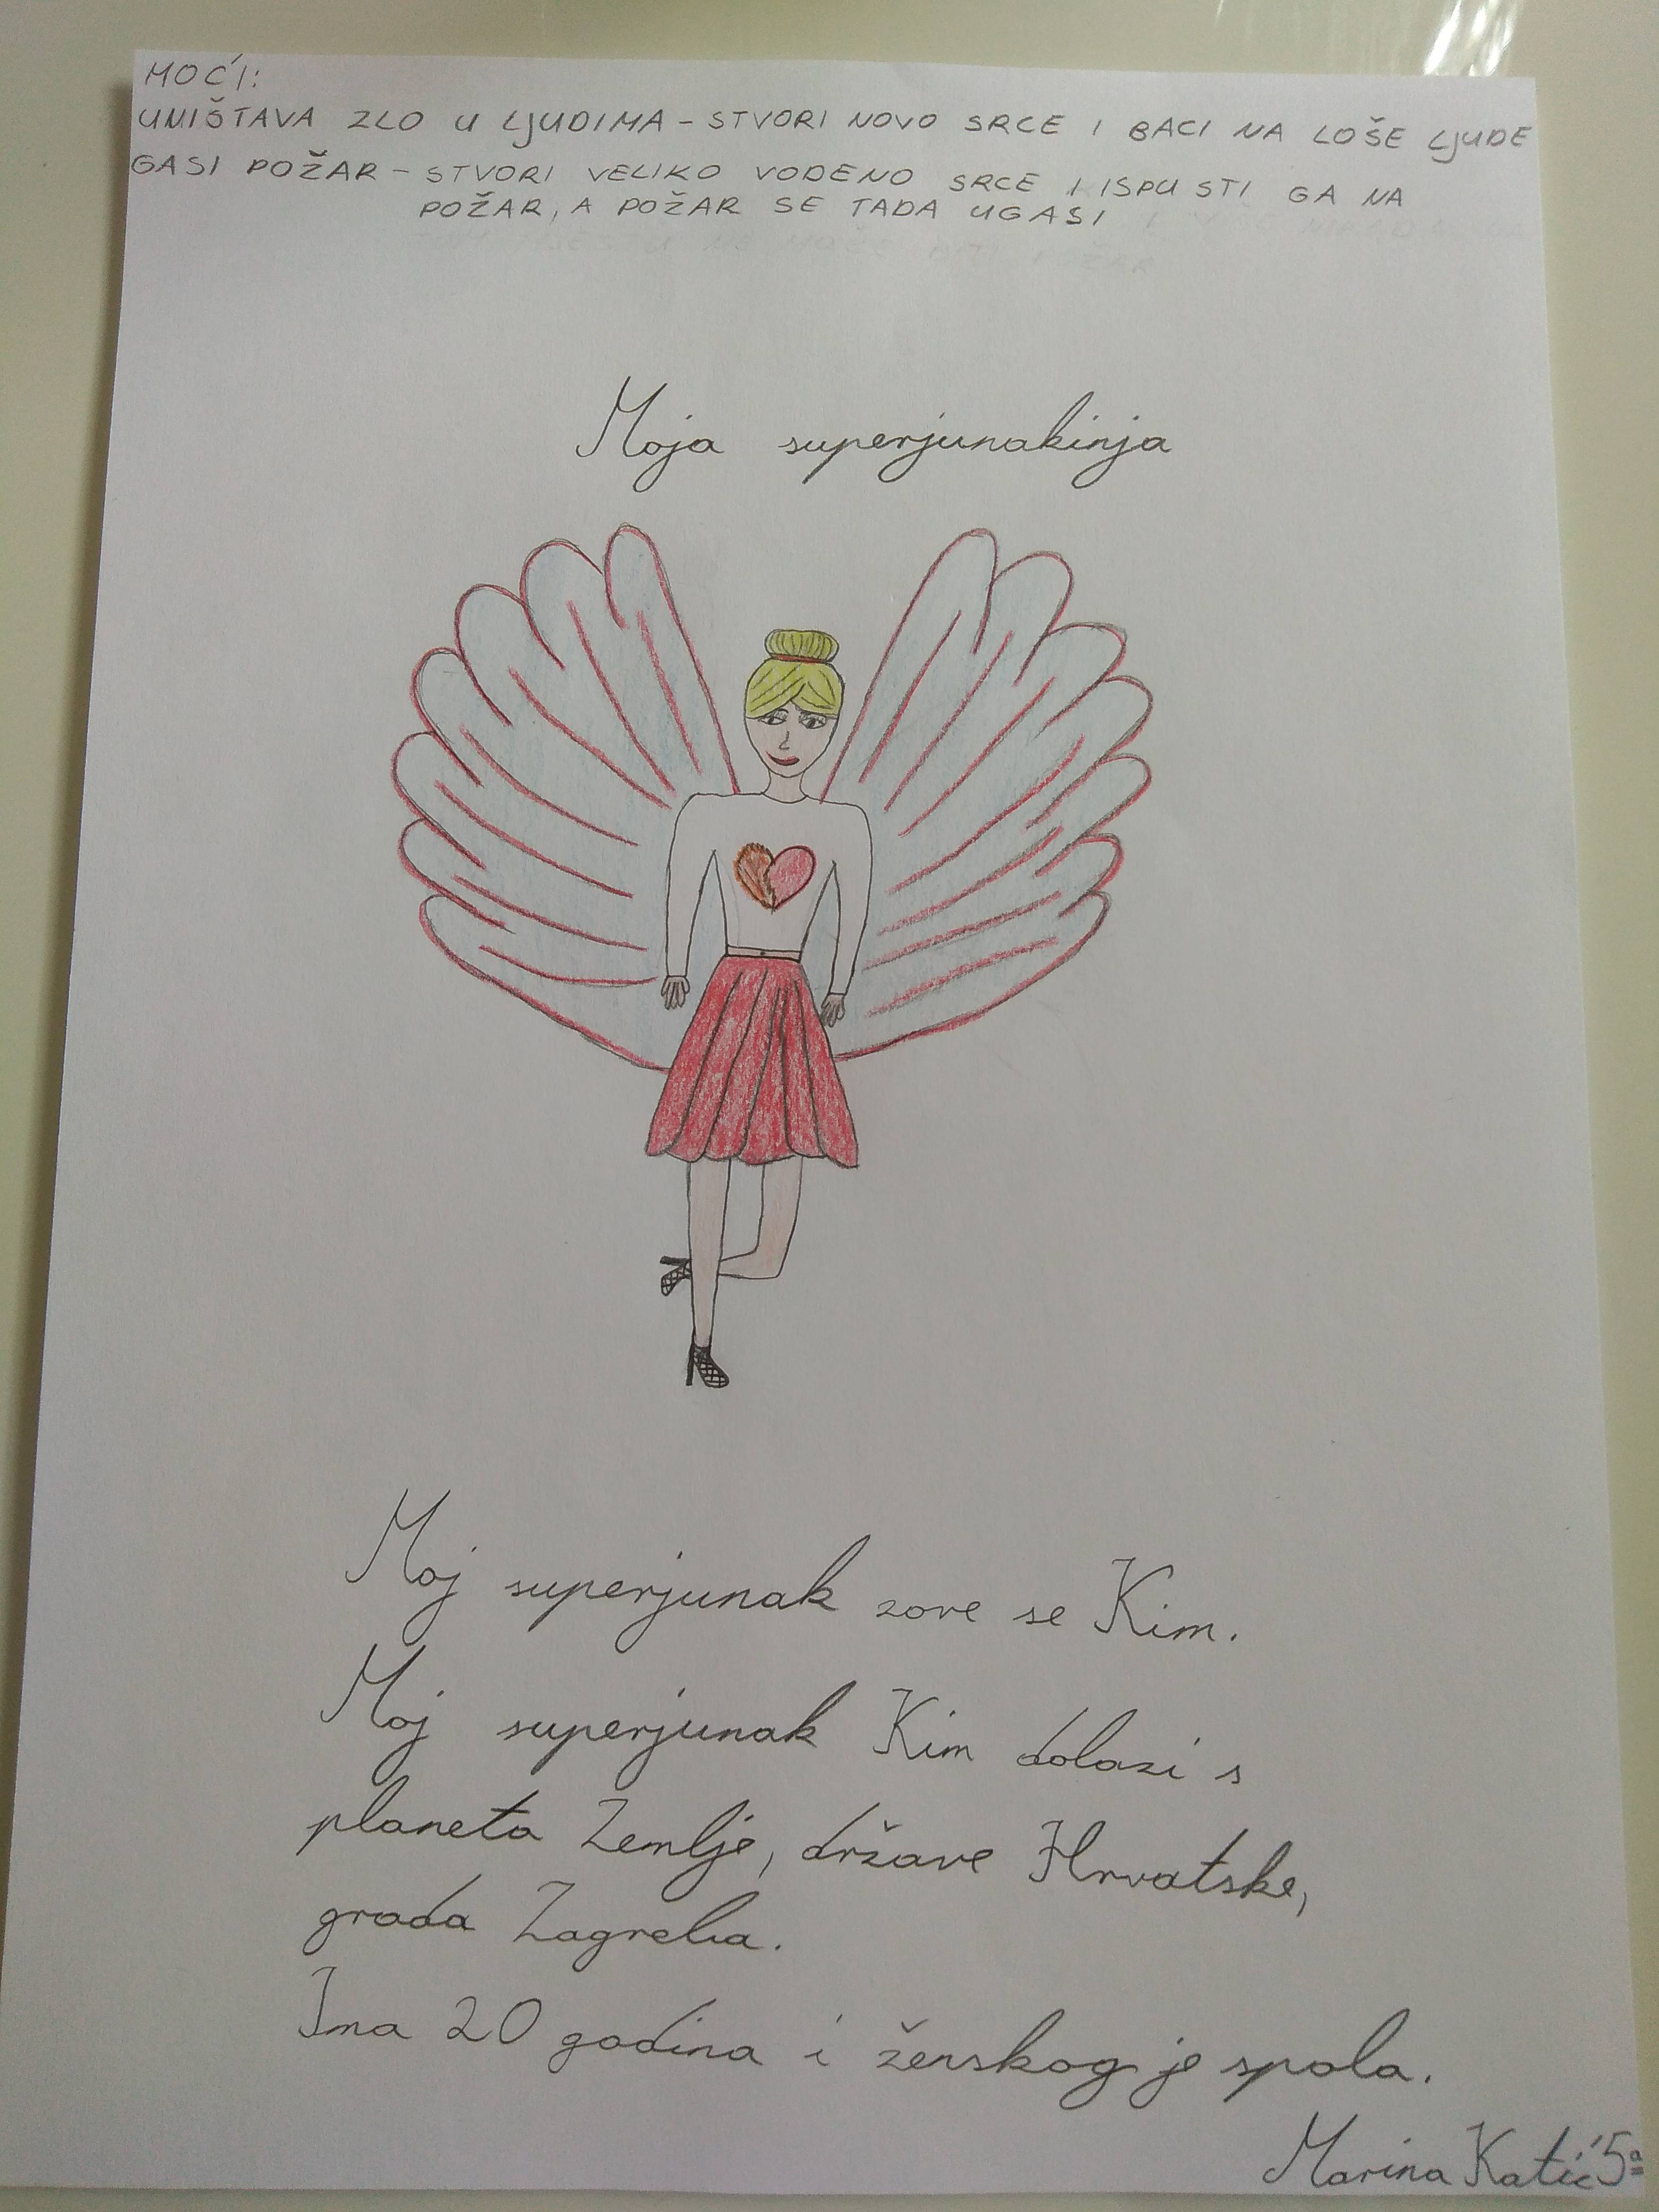 MOĆI:
UNIŠTAVA ZLO U LJUDIMA - STVORI NOVO SRCE I BACI NA LOŠE LJUDE
GASI POŽAR - STVORI VELIKO VODENO SRCE I ISPUSTI GA NA
POŽAR, A POŽAR SE TADA UGASI
Moja superjunakinja
Moj superjunak zove se Kim.
Moj superjunak Kim dolazi s
planeta Zemlje, države Hrvatske,
grada Zagreba.
Ima 20 godina i ženskog je spola.
Marina Katić 5a